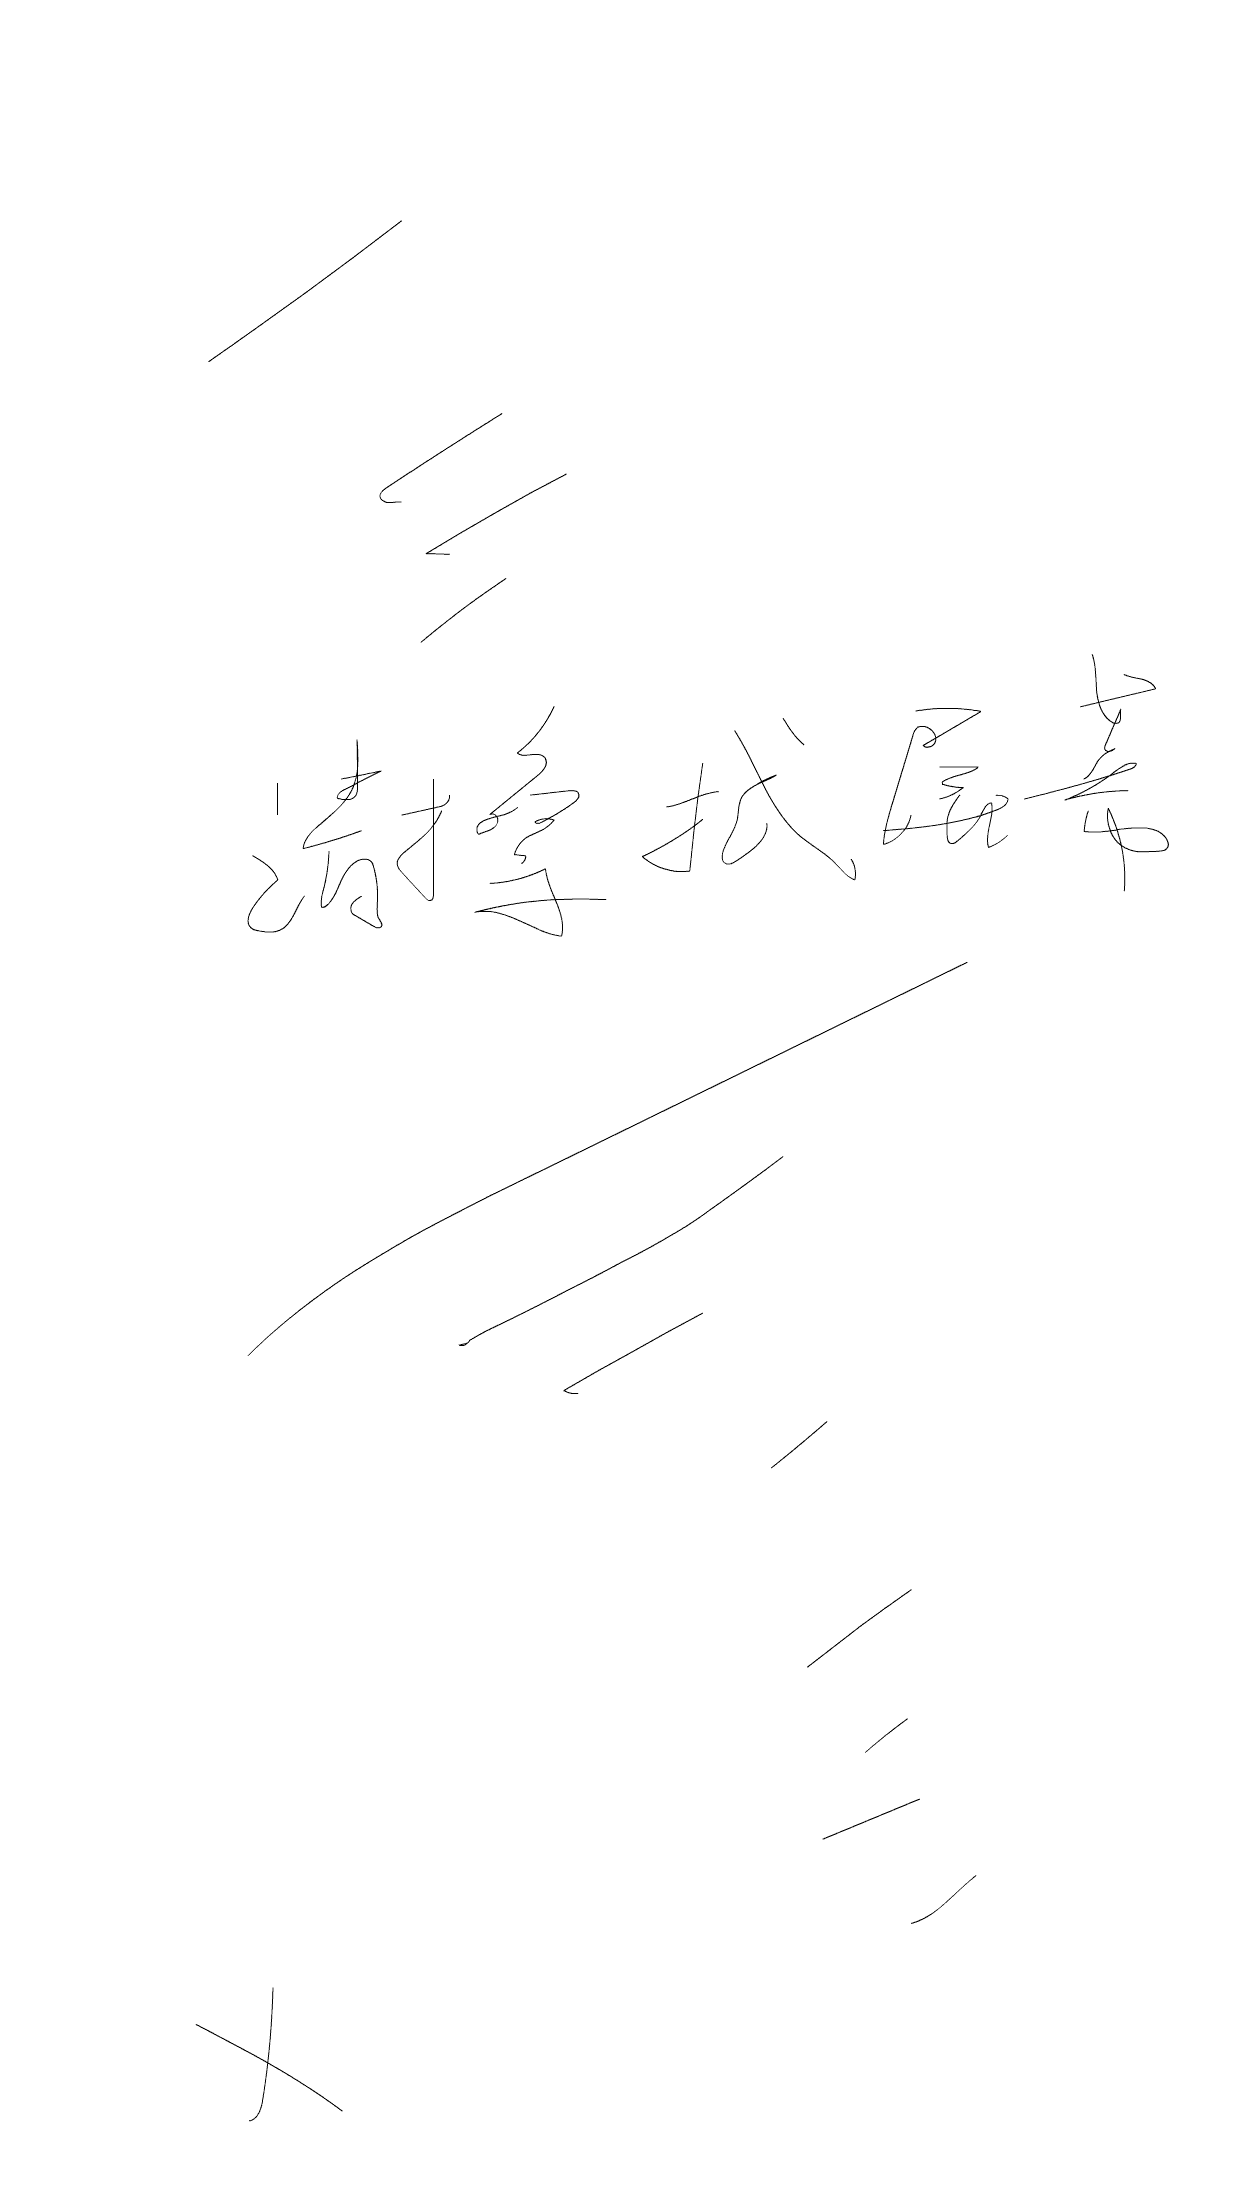 请擦拭屏幕